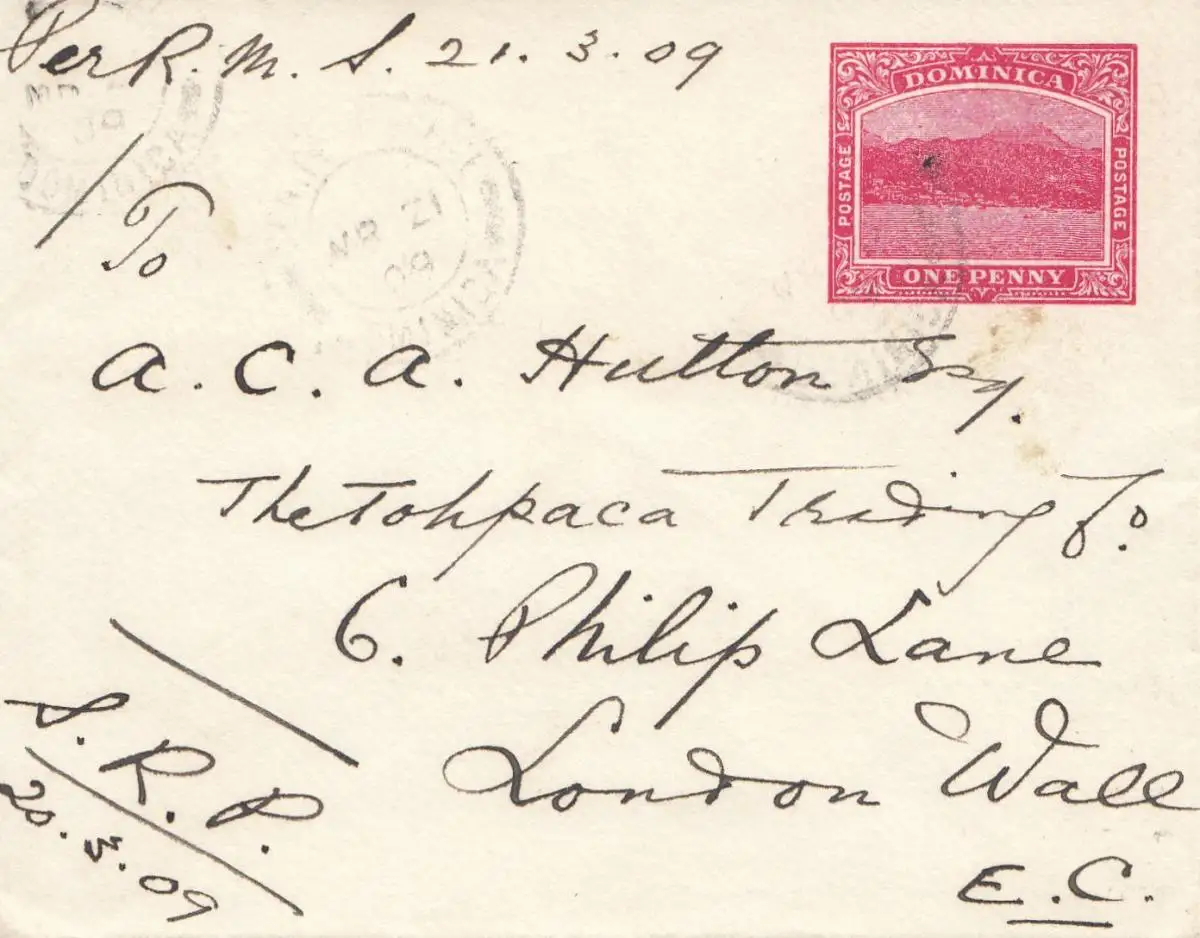 Per R. M. S. 21. 3. 09
DOMINICA
POSTAGE
POSTAGE
ONE PENNY
DOMINICA
MR 21
09
DOMINICA
To
A. C. A. Hutton Esq.
The Tohpaca Trading Co.
6. Philip Lane
London Wall
E.C.
S. R. P.
20. 3. 09